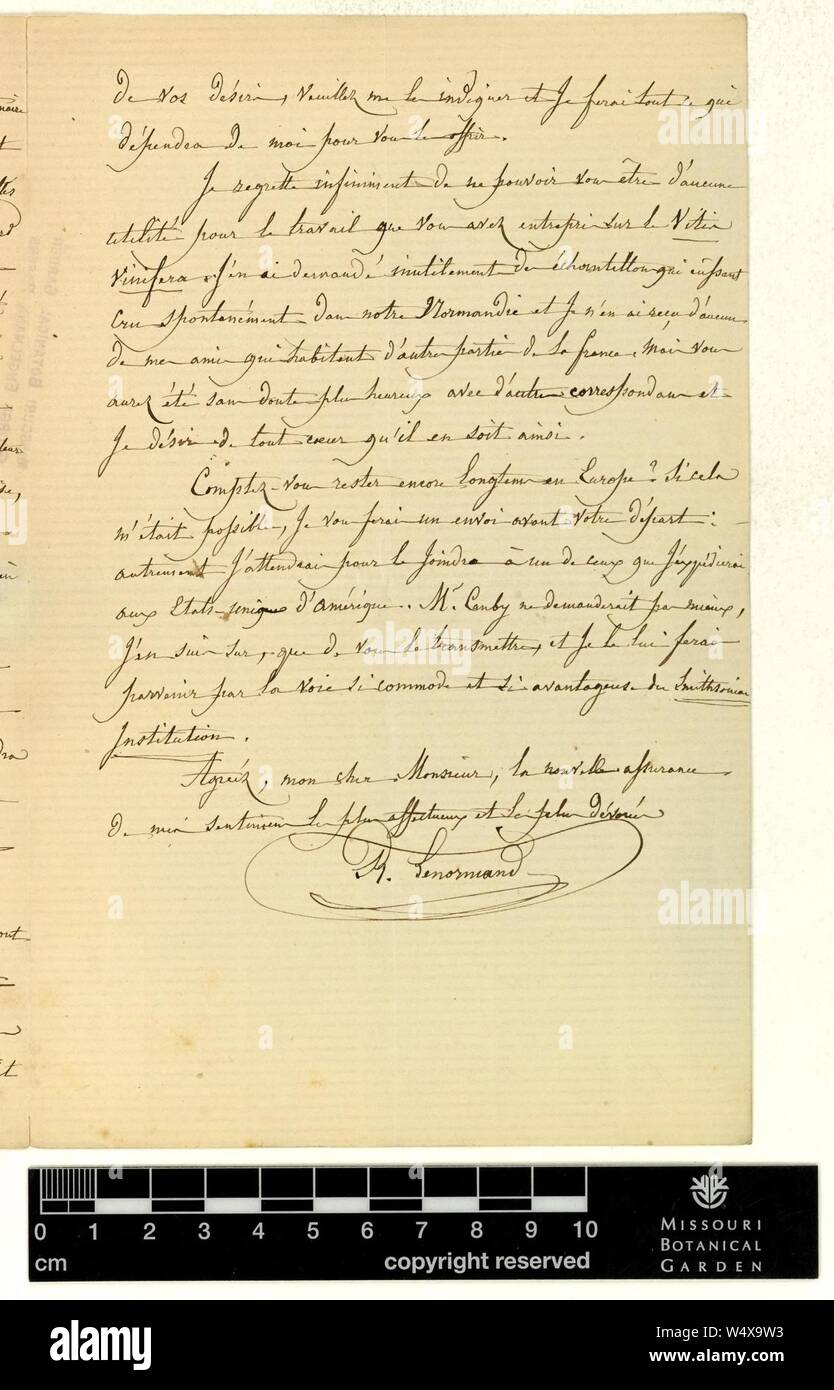 de vos désirs, veuillez me les indiquer et Je ferai tout ce qui
dépendra de moi pour vous les offrir.
Je regrette infiniment de ne pouvoir vous être d'aucune
utilité pour le travail que vous avez entrepris sur le Vitis
vinifera. J'en ai demandé inutilement des échantillons qui eussent
cru spontanément dans notre Normandie et Je n'en ai reçu d'aucuns
de mes amis qui habitent d'autres parties de la france. Mais vous
aurez été sans doute plus heureux avec d'autres correspondans et
Je désire de tout cœur qu'il en soit ainsi.
Comptez-vous rester encore longtems en Europe ? Si cela
m'était possible, Je vous ferais un envoi avant votre départ :
autrement J'attendrai pour le Joindre à un de ceux que J'expédierai
aux Etats-unis d'amérique. Mr. Canby ne demanderait pas mieux,
J'en suis sur, que de vous le transmettre, et Je le lui ferai
parvenir par la voie si commode et si avantageuse du Smithsonian
Institution.
Agréez, mon cher Monsieur, la nouvelle assurance
de mes sentimens les plus affectueux et les plus dévoués
R. Lenormand
0 1 2 3 4 5 6 7 8 9 10
cm
copyright reserved
MISSOURI
BOTANICAL
GARDEN
alamy
Image ID: W4X9W3
www.alamy.com